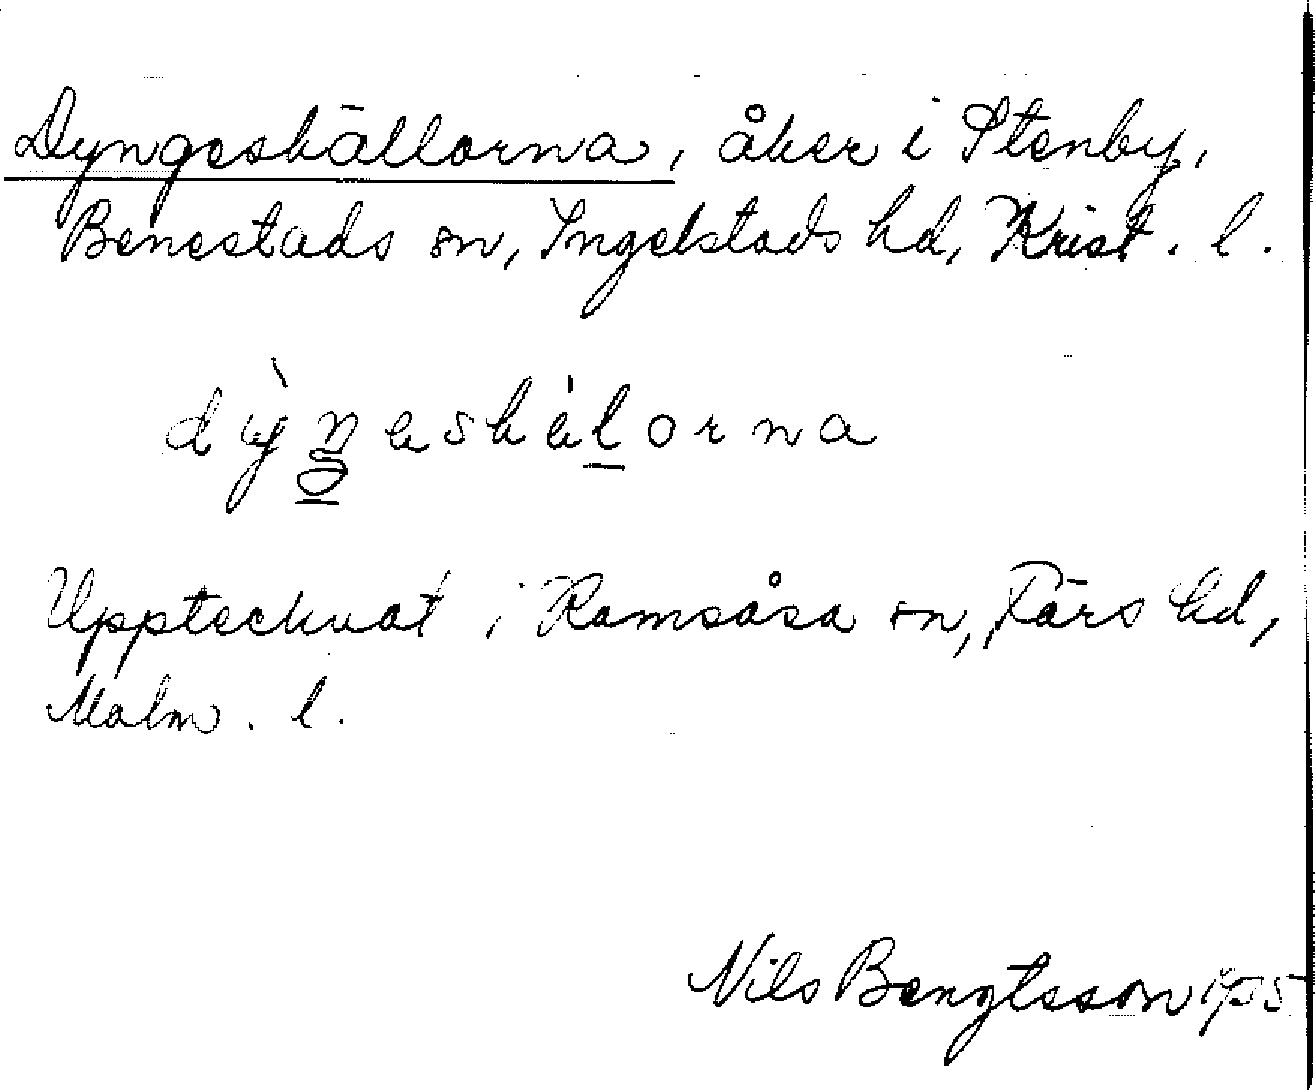 Dyngeskällorna, åker i Stenby,
Benestads sn, Ingelstads hd, Krist. l.
Upptecknat i Ramsåsa sn, Färs hd,
Malm. l.
Nils Bengtsson 1955